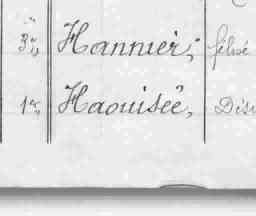 3e, Hannier, félné
1er, Haouisée, Dési